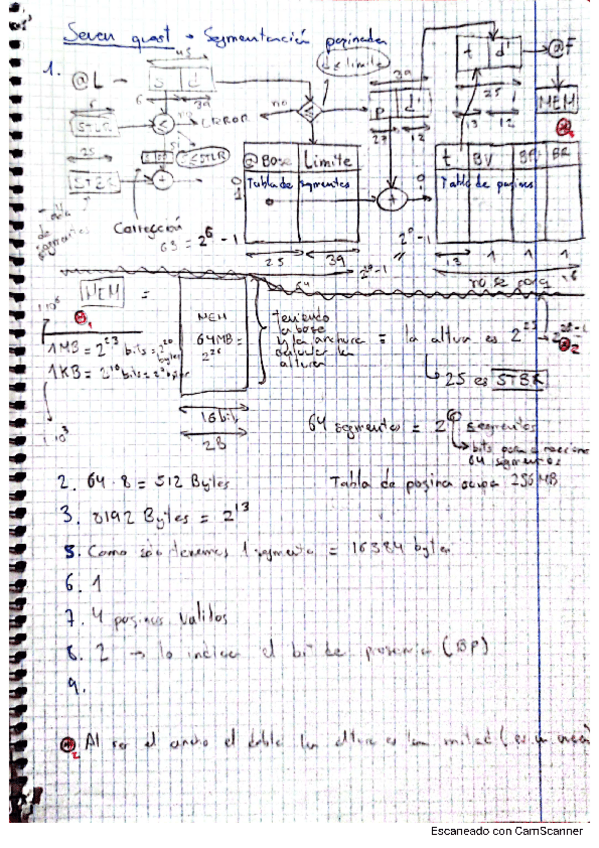 Seven quest - Segmentación paginada
1.
@L
45
s d
6 39
no
d ≤ limite
39
p d'
27 12
t d'
@F
25
13 12
MEM
6
STLR
≤
no
ERROR
si
25
STBR
+
@Base Limite
Tabla de segmentos
0
1
25 39
+
t BV BP BR
Tabla de paginas
0
1
13 1 1 1
no se
Corrección
63 = 2^6 - 1
tabla
de
segmentos
MEM =
MEM
64MB =
2^26
16 bit
2B
Teniendo
la base
y la anchura
calcular la
altura
= la altura es 2^25
25 es STBR
1MB = 2^23 bits = 2^20
bytes
1KB =
64 segmentos = 2^6 segmentos
bits para direccionar
64 segmentos
2. 64 · 8 = 512 Bytes
Tabla de pagina ocupa 256 MB
3. 8192 Bytes = 2^13
5. Como solo tenemos 1 segmento = 16384 bytes
6. 1
7. 4 paginas validas
8. 2 → lo indica el bit de presencia (BP)
9.
2 Al ser el ancho el doble la altura es la mitad (es un
Escaneado con CamScanner